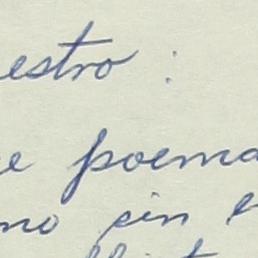 estro :
e poema
no sin e